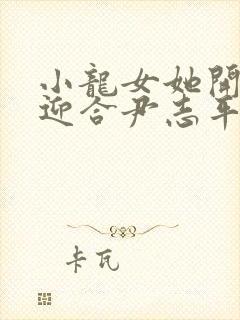 小龍女她開
迎合尹志平
卡瓦